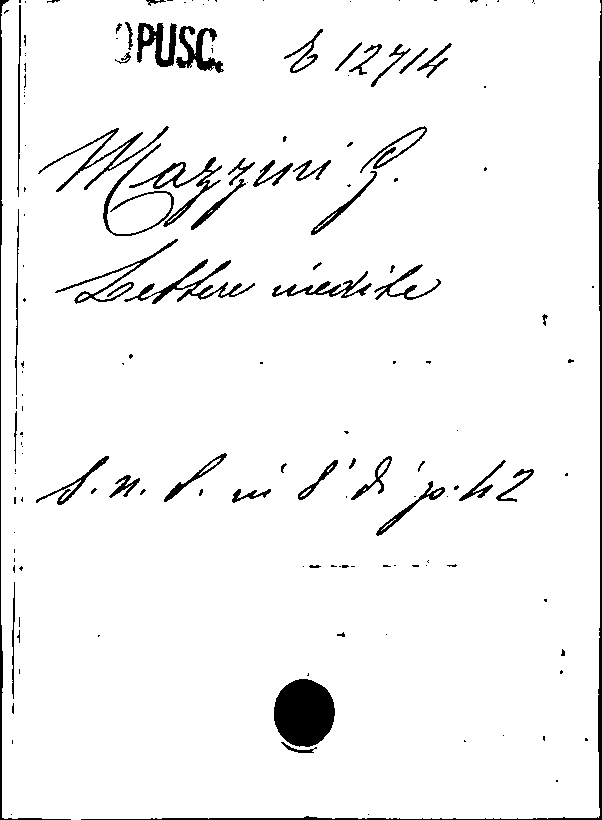 OPUSC. E 12714
Mazzini G.
Lettere inedite
S. n. t. in 8° di p. 42